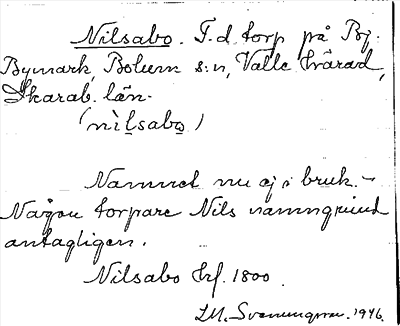 Nilsabo. F.d. torp på Bj.
Bymark, Bolum s:n, Valle härad,
Skarab. län.
(nìlsabo)
Namnet nu ej i bruk. –
Någon torpare Nils namngivit
antagligen.
Nilsabo hf. 1800.
1946.